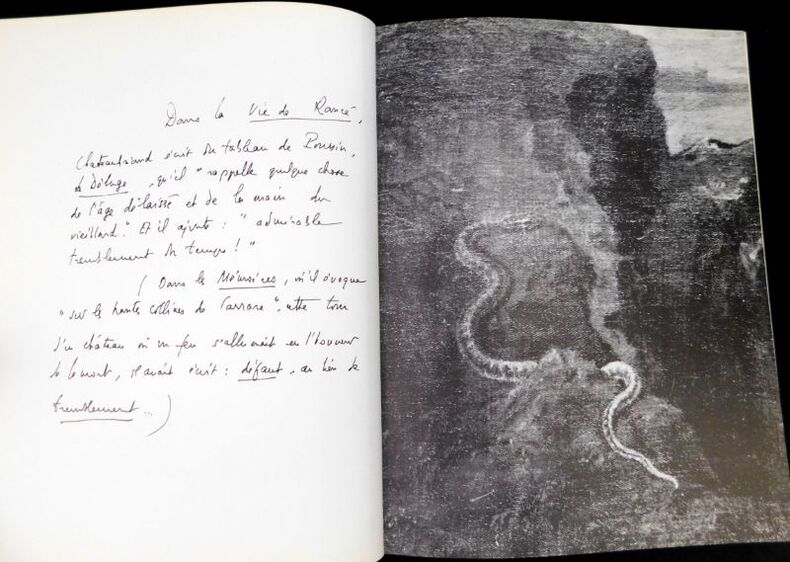 Dans la Vie de Rancé,
Chateaubriand écrit du tableau de Poussin,
le Déluge, qu'il "rappelle quelque chose
de l'âge délaissé et de la main du
vieillard." Et il ajoute : "admirable
tremblement du temps !"
(Dans les Mémoires, où il évoque
"sur les hautes collines de", cette tour
d'un château où un feu s'allumait en l'honneur
de la mort, il avait écrit : défaut, au lieu de
tremblement...)